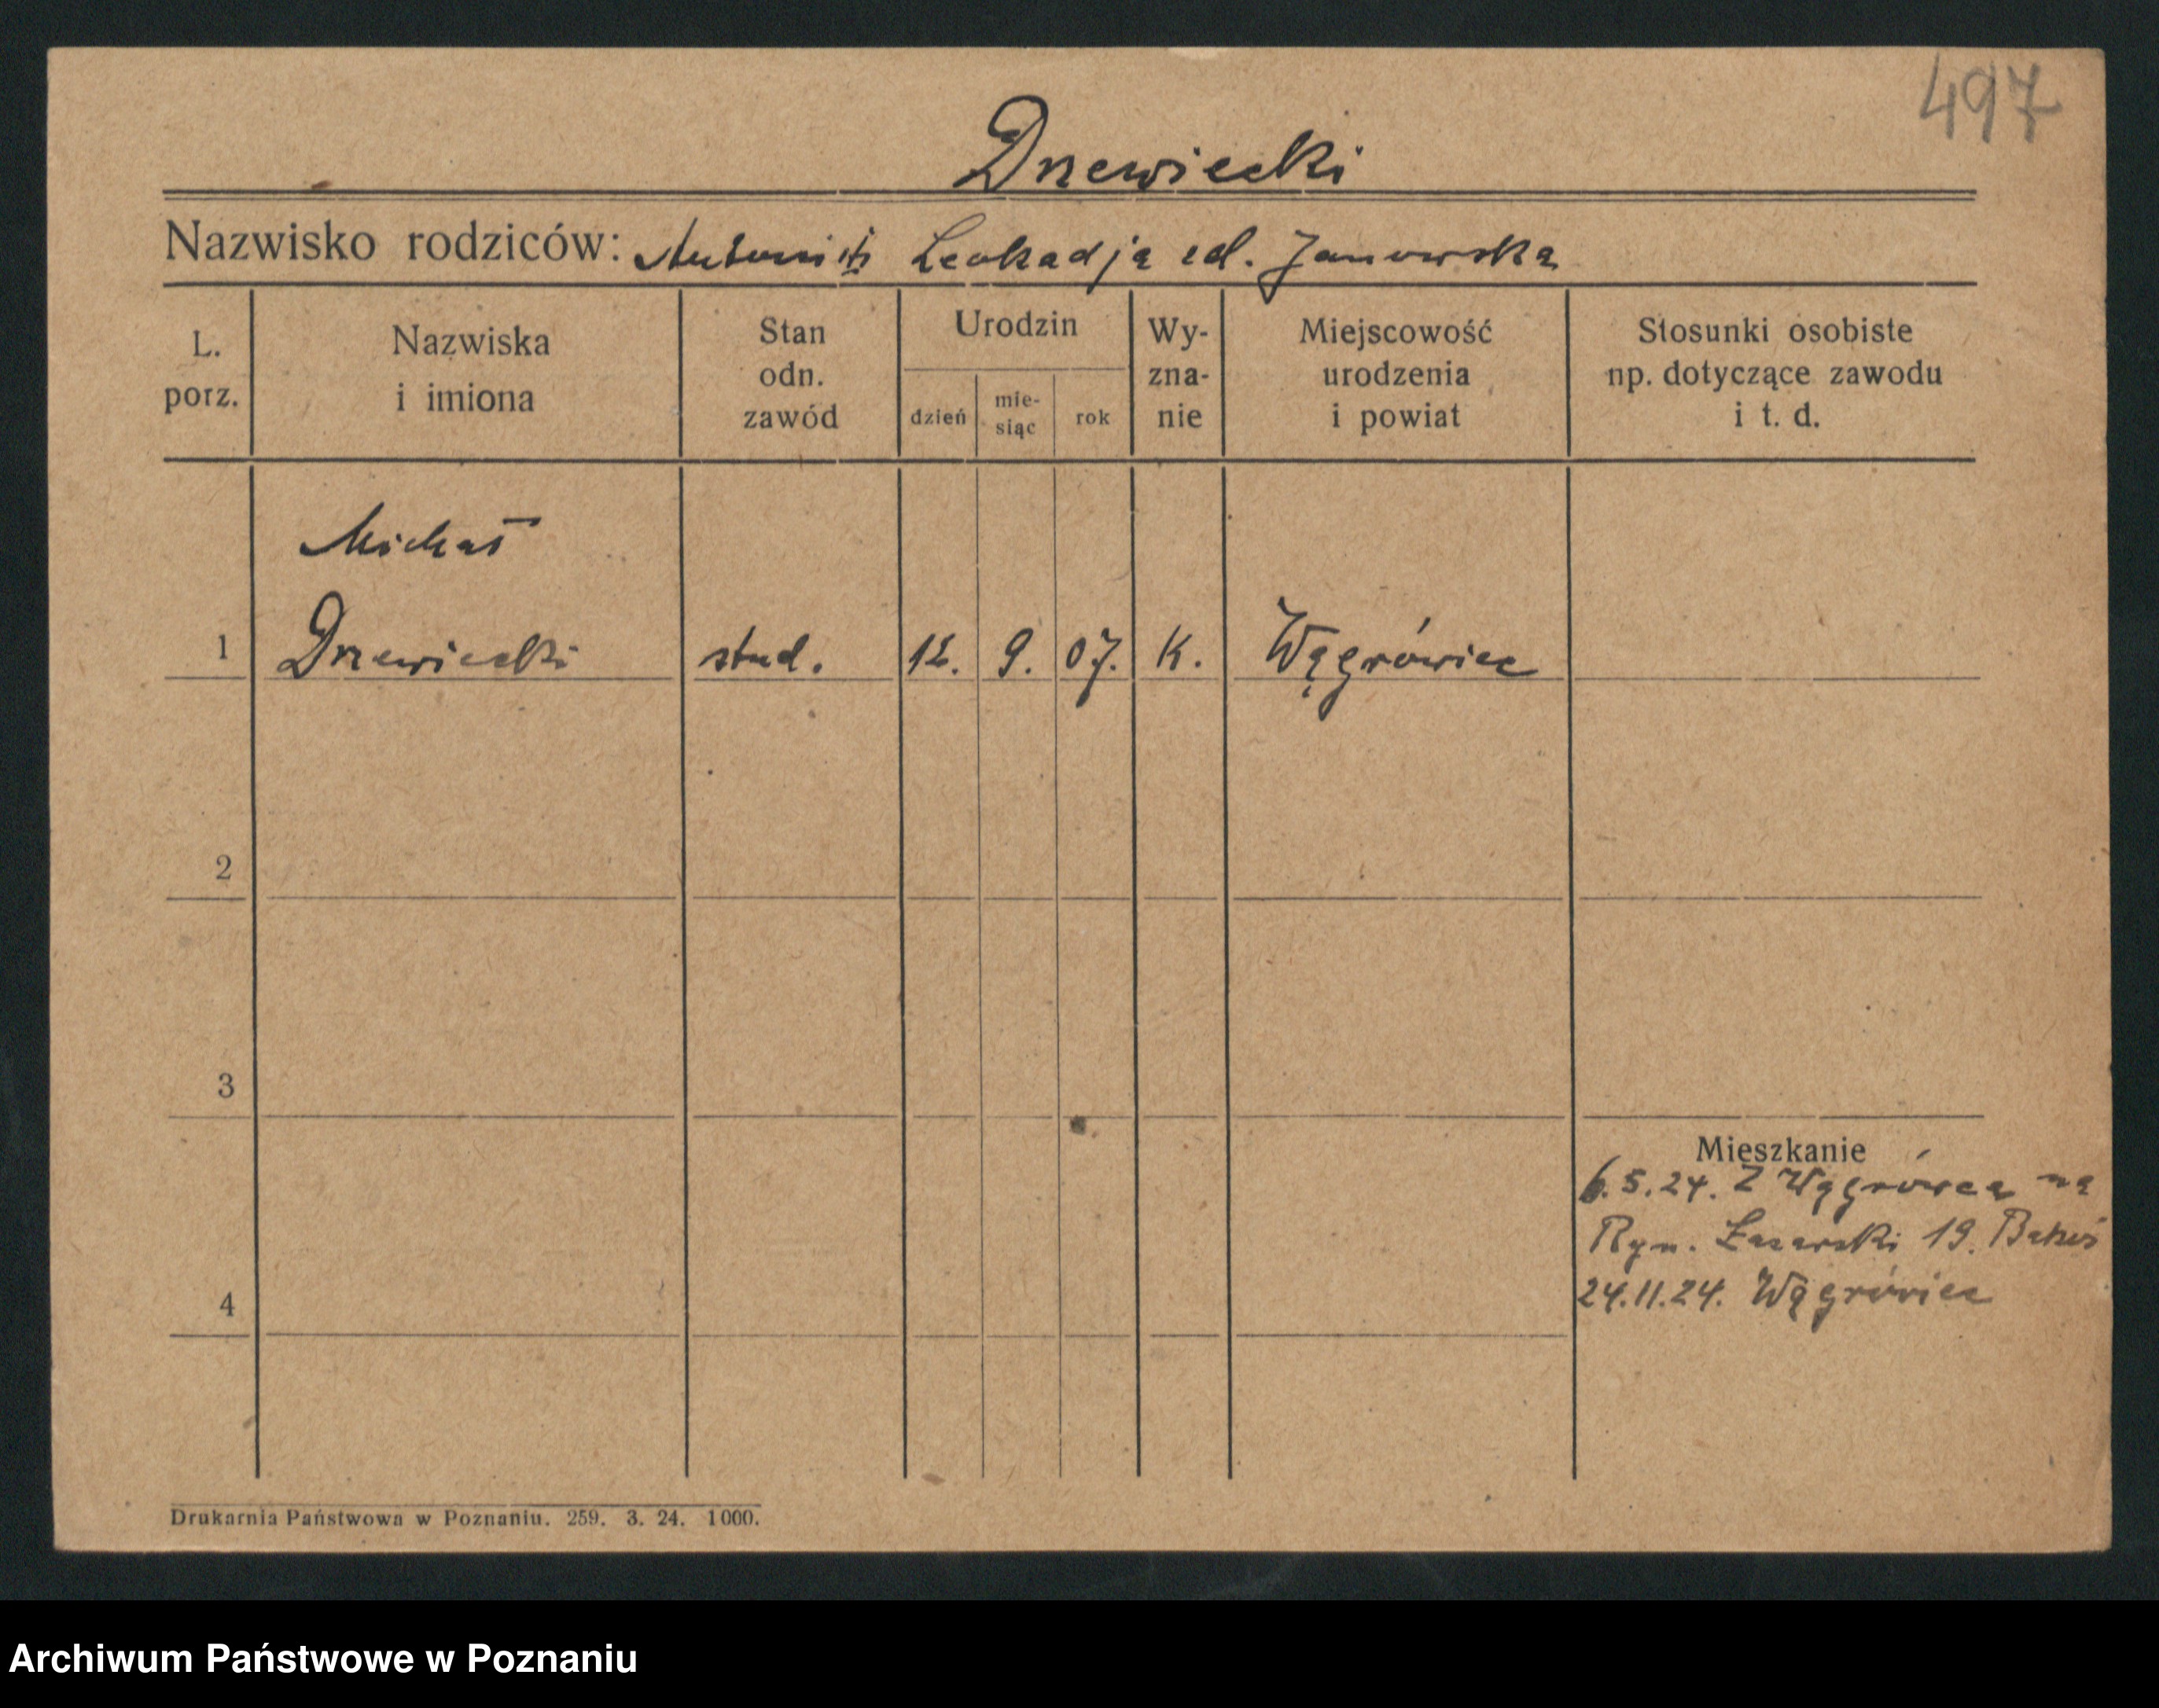 497
Drzewiecki
Nazwisko rodziców: Antoni i Leokadja zd. Janowska
L. porz.
Nazwiska i imiona
Stan odn. zawód
Urodzin
dzień
mie-
siąc
rok
Wy-
zna-
nie
Miejscowość urodzenia i powiat
Stosunki osobiste np. dotyczące zawodu i t. d.
Michał
1 Drzewiecki stud. 12. 9. 07. K. Wągrówiec
2
3
Mieszkanie
6.5.24. Z Wągrówca na
Ryn. Łazarski 19.
24.11.24. Wągrówiec
4
Drukarnia Państwowa w Poznaniu. 259. 3. 24. 1000.
Archiwum Państwowe w Poznaniu